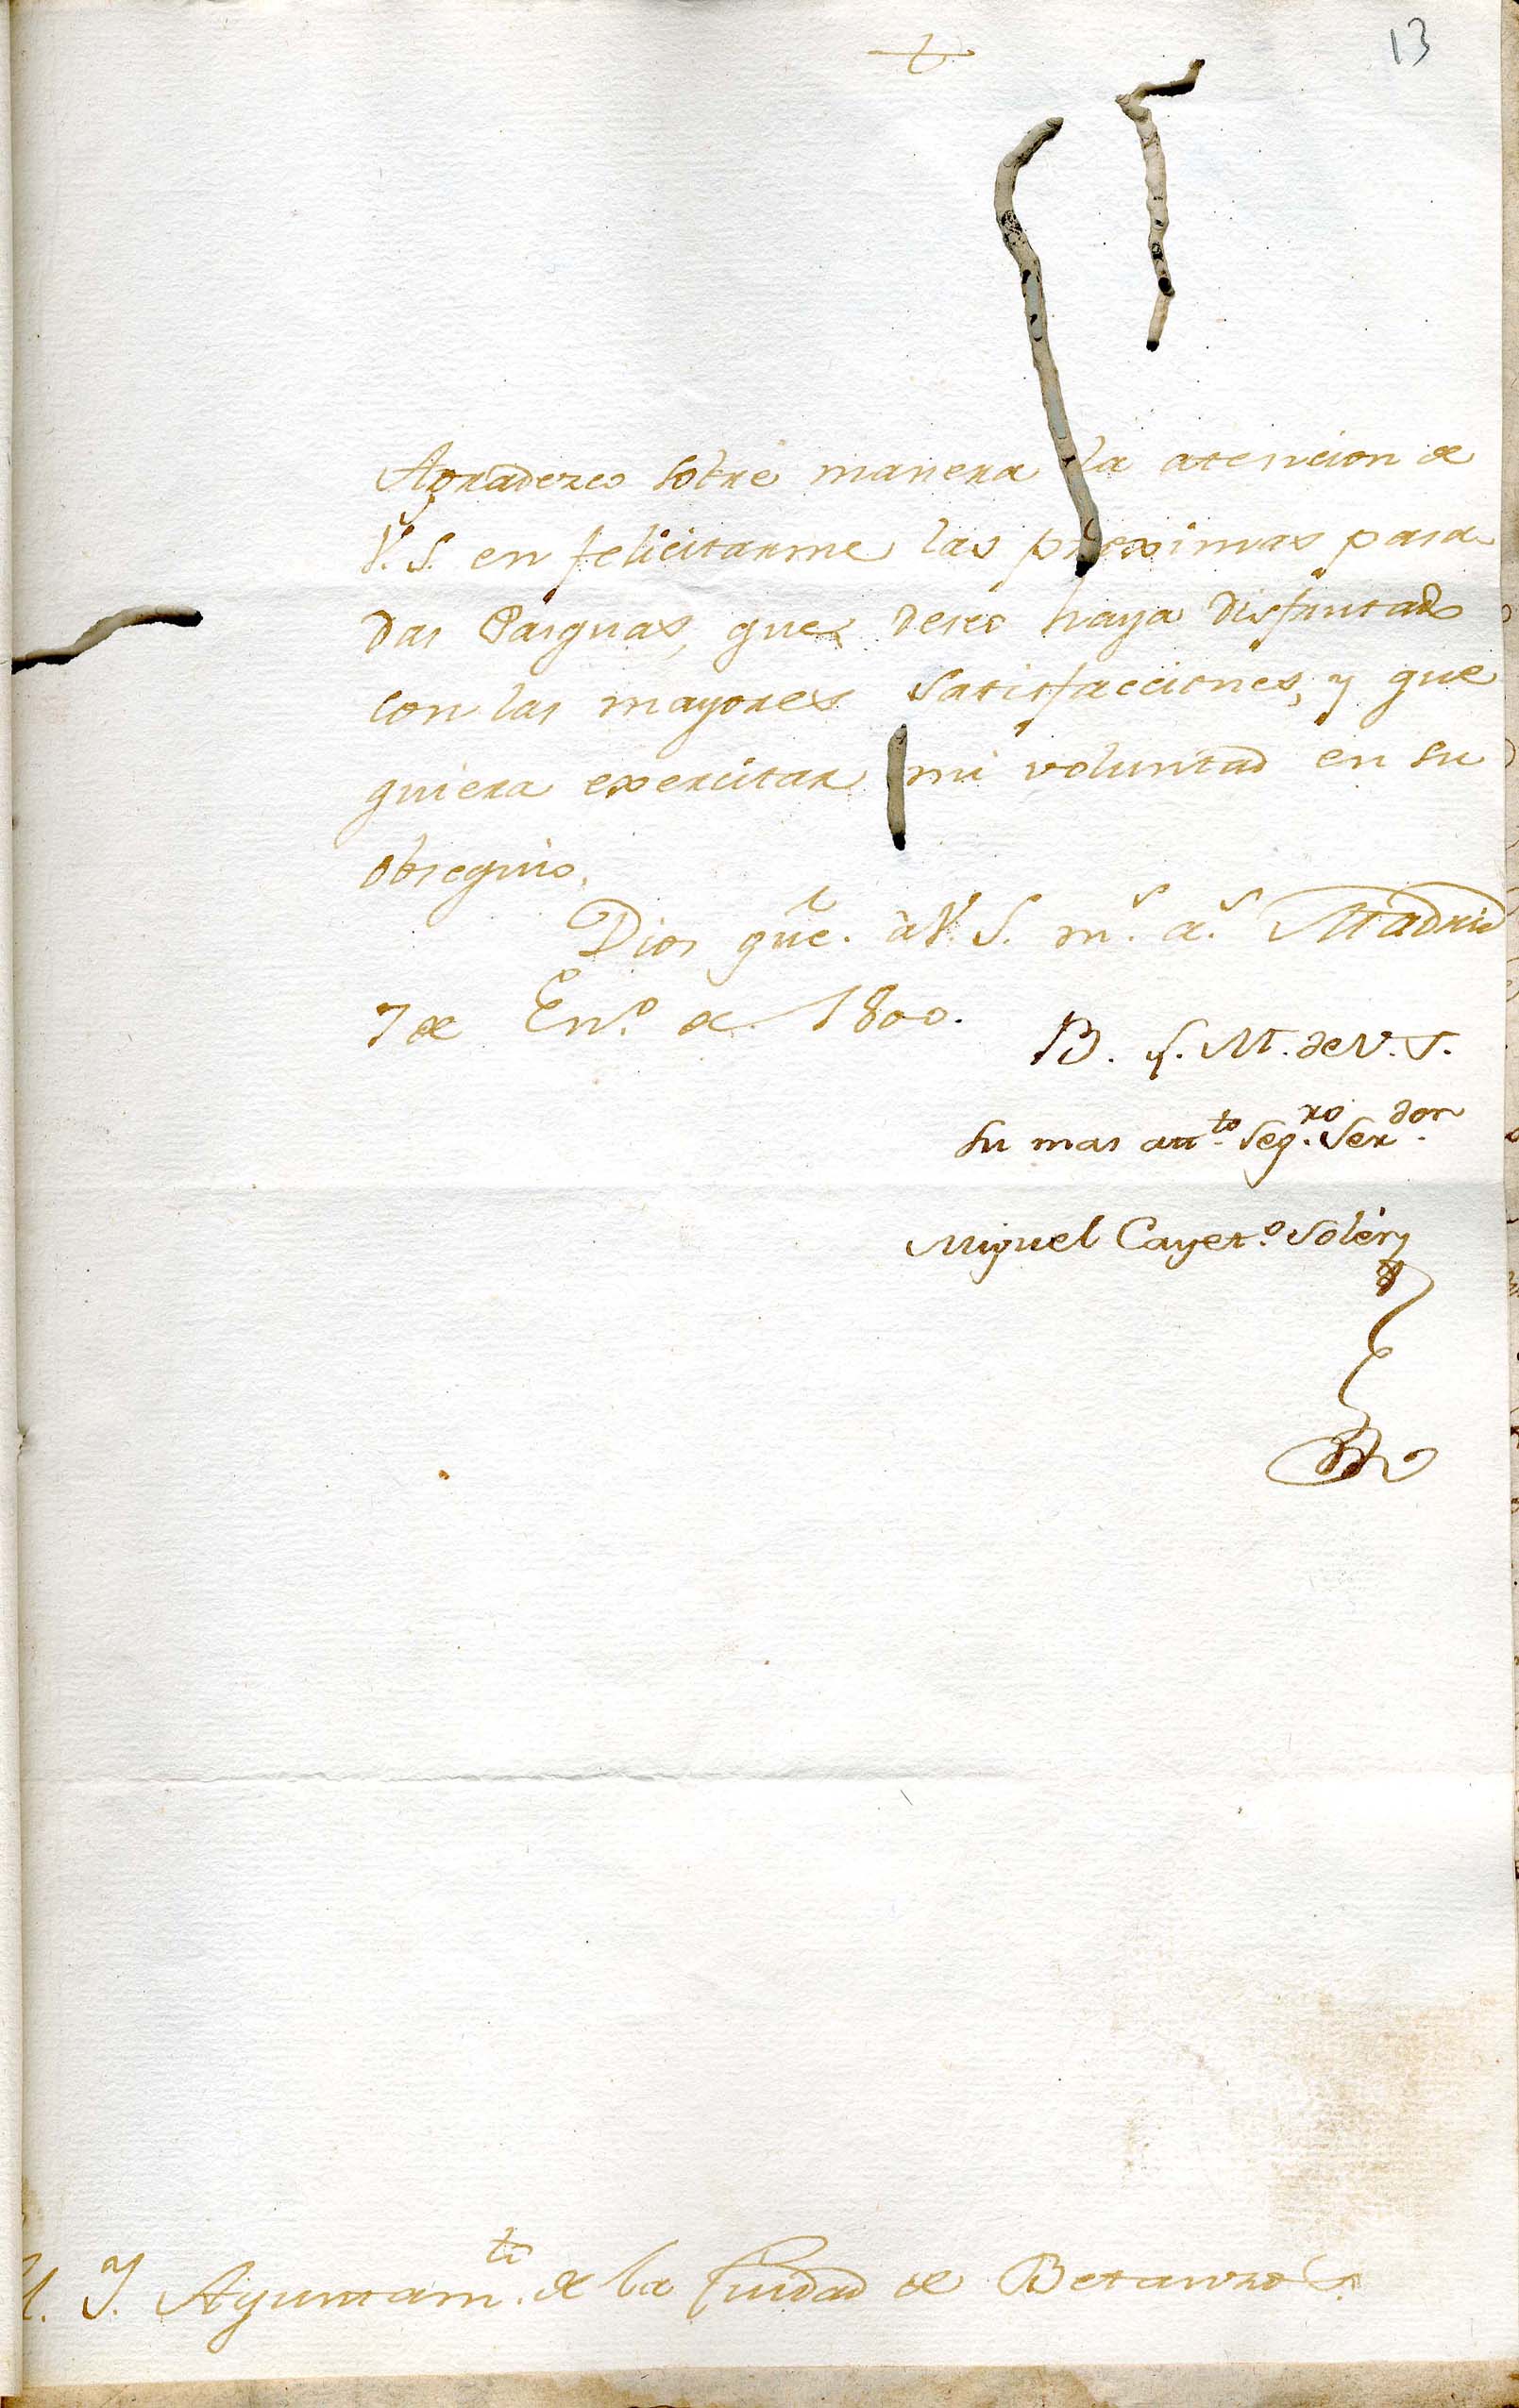 13
Agradezco sobre manera la atencion de
V. S. en felicitarme las proximas pasa-
das Pasquas, que deseo haya disfrutado
con las mayores satisfacciones, y que
quiera exercitar mi voluntad en su
obsequio.
Dios gũe. à V. S. m.s a.s Madrid
7 de En.o de 1800.
B. L. M. de V. S.
Su mas att.to Seg.ro Ser.dor
Miguel Cayet.o Solér
I. Ayuntam.to de la Ciudad de Betanzos.